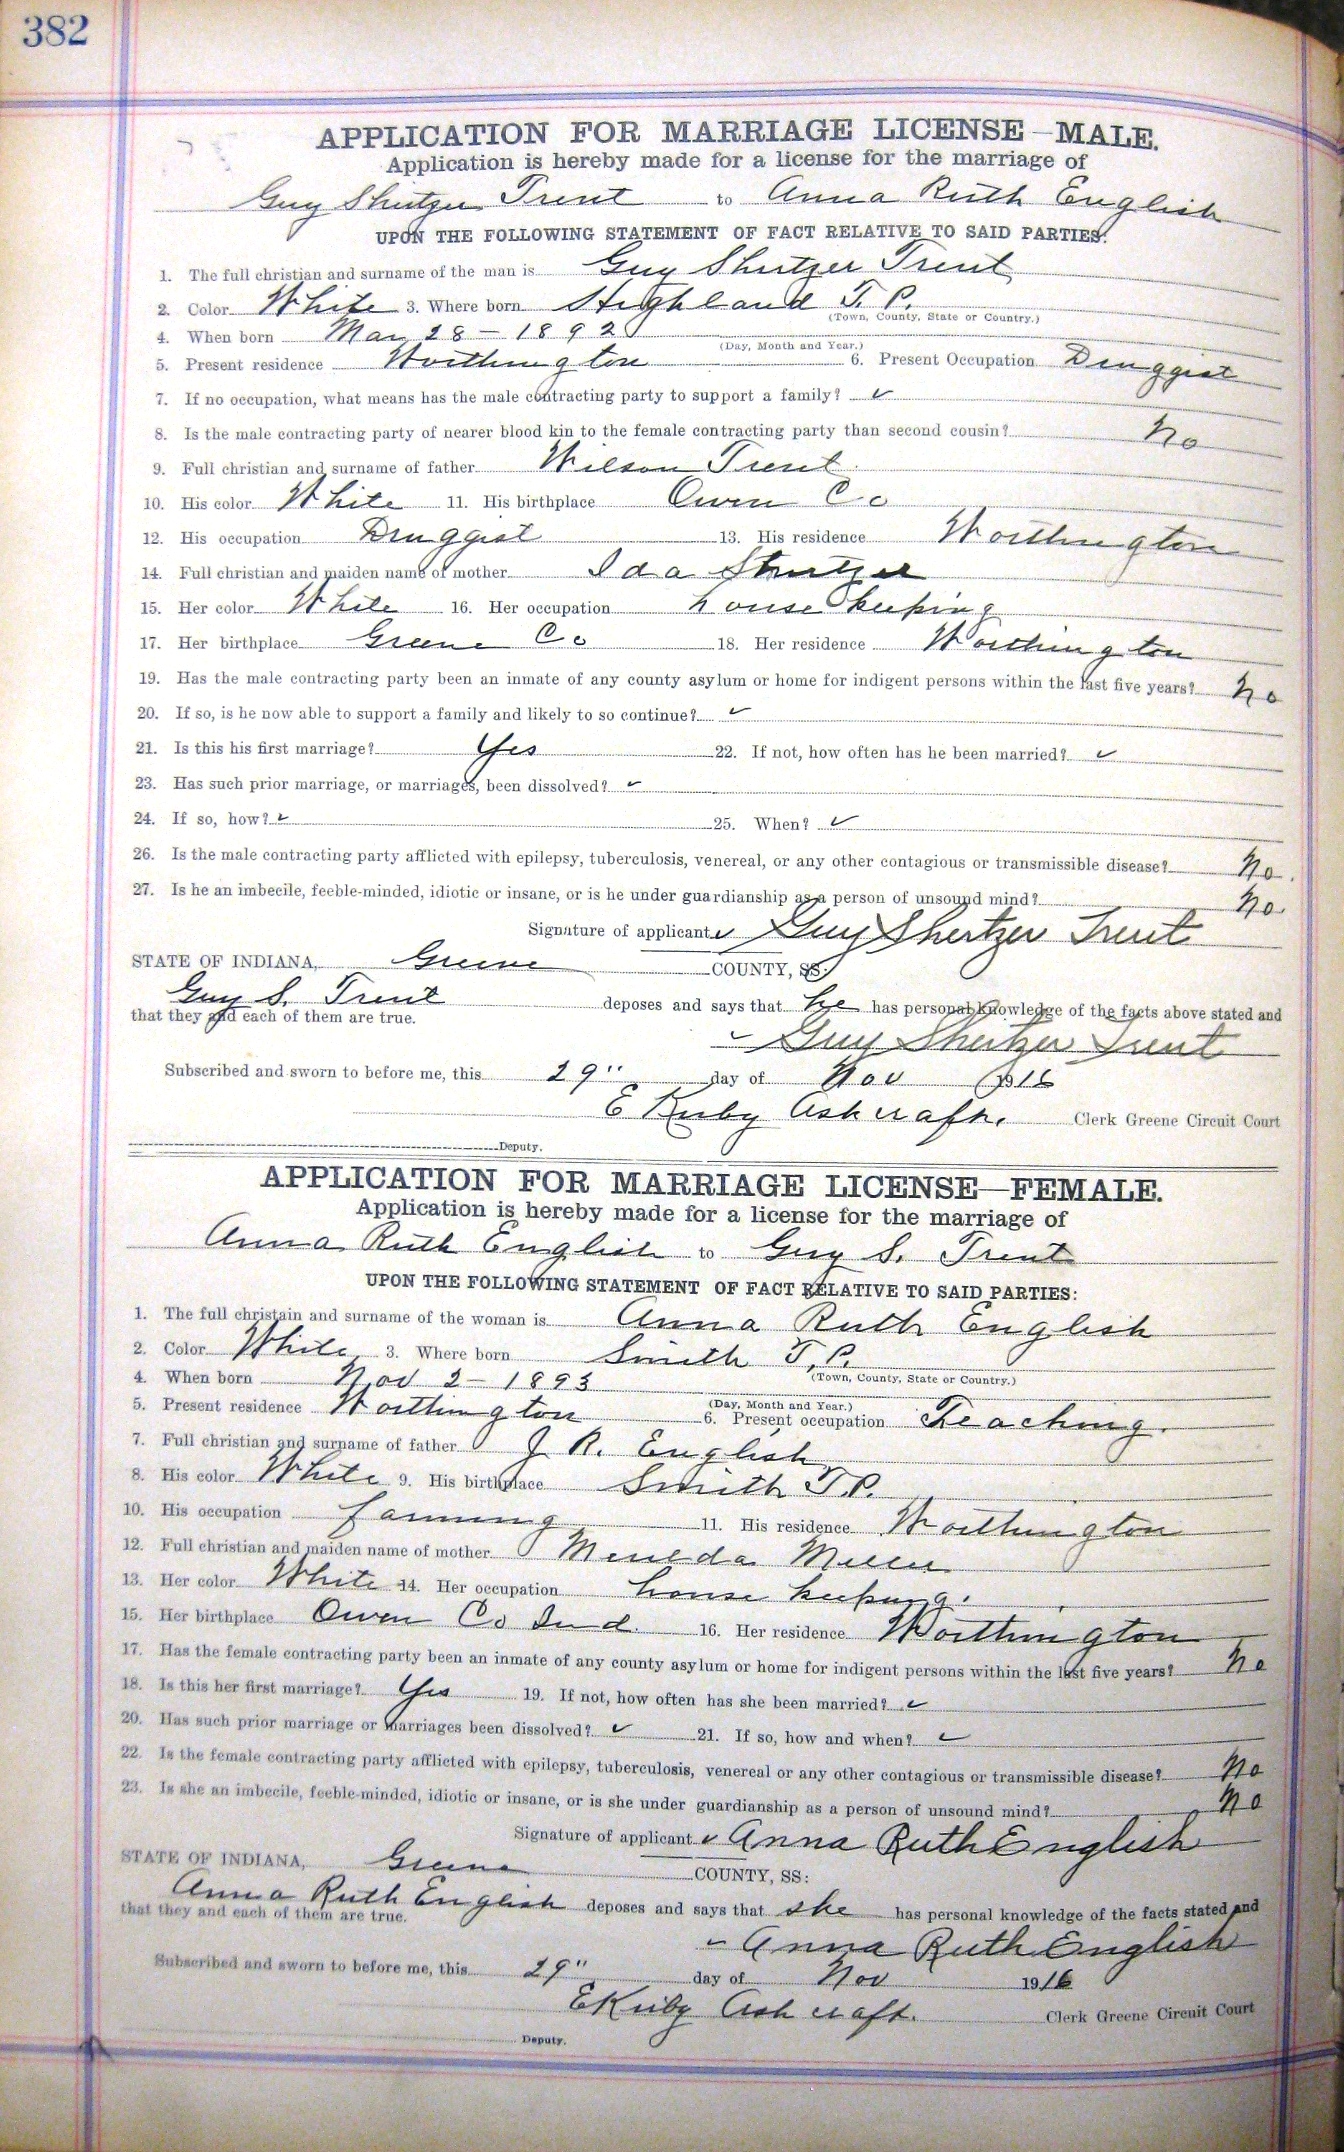 382
APPLICATION FOR MARRIAGE LICENSE—MALE.
Application is hereby made for a license for the marriage of
Guy Shertzer Trent to Anna Ruth English
UPON THE FOLLOWING STATEMENT OF FACT RELATIVE TO SAID PARTIES:
1. The full christian and surname of the man is Guy Shertzer Trent
2. Color White 3. Where born Highland T. P.
(Town, County, State or Country.)
4. When born Mar 28 - 1892
(Day, Month and Year.)
5. Present residence Worthington 6. Present Occupation Druggist
7. If no occupation, what means has the male contracting party to support a family? ✓
8. Is the male contracting party of nearer blood kin to the female contracting party than second cousin? No
9. Full christian and surname of father Wilson Trent
10. His color White 11. His birthplace Owen Co
12. His occupation Druggist 13. His residence Worthington
14. Full christian and maiden name of mother Ida Shertzer
15. Her color White 16. Her occupation house keeping
17. Her birthplace Greene Co 18. Her residence Worthington
19. Has the male contracting party been an inmate of any county asylum or home for indigent persons within the last five years? No
20. If so, is he now able to support a family and likely to so continue? ✓
21. Is this his first marriage? Yes 22. If not, how often has he been married? ✓
23. Has such prior marriage, or marriages, been dissolved? ✓
24. If so, how? ✓ 25. When? ✓
26. Is the male contracting party afflicted with epilepsy, tuberculosis, venereal, or any other contagious or transmissible disease? No.
27. Is he an imbecile, feeble-minded, idiotic or insane, or is he under guardianship as a person of unsound mind? No
Signature of applicant ✓ Guy Shertzer Trent
STATE OF INDIANA, Greene COUNTY, SS:
Guy S. Trent deposes and says that he has personal knowledge of the facts above stated and
that they and each of them are true.
✓ Guy Shertzer Trent
Subscribed and sworn to before me, this 29" day of Nov 1916
E Kirby Ashcraft. Clerk Greene Circuit Court
Deputy.
APPLICATION FOR MARRIAGE LICENSE—FEMALE.
Application is hereby made for a license for the marriage of
Anna Ruth English to Guy S. Trent
UPON THE FOLLOWING STATEMENT OF FACT RELATIVE TO SAID PARTIES:
1. The full christain and surname of the woman is Anna Ruth English
2. Color White 3. Where born Smith T. P.
(Town, County, State or Country.)
4. When born Nov 2 - 1893
(Day, Month and Year.)
5. Present residence Worthington 6. Present occupation Teaching.
7. Full christian and surname of father J R. English
8. His color White 9. His birthplace Smith T.P.
10. His occupation farming 11. His residence Worthington
12. Full christian and maiden name of mother Miller
13. Her color White 14. Her occupation house keeping.
15. Her birthplace Owen Co Ind. 16. Her residence Worthington
17. Has the female contracting party been an inmate of any county asylum or home for indigent persons within the last five years? No
18. Is this her first marriage? Yes 19. If not, how often has she been married? ✓
20. Has such prior marriage or marriages been dissolved? ✓ 21. If so, how and when? ✓
22. Is the female contracting party afflicted with epilepsy, tuberculosis, venereal or any other contagious or transmissible disease? No
23. Is she an imbecile, feeble-minded, idiotic or insane, or is she under guardianship as a person of unsound mind? No
Signature of applicant ✓ Anna Ruth English
STATE OF INDIANA, Greene COUNTY, SS:
Anna Ruth English deposes and says that she has personal knowledge of the facts stated and
that they and each of them are true.
✓ Anna Ruth English
Subscribed and sworn to before me, this 29" day of Nov 1916
E Kirby Ashcraft. Clerk Greene Circuit Court
Deputy.